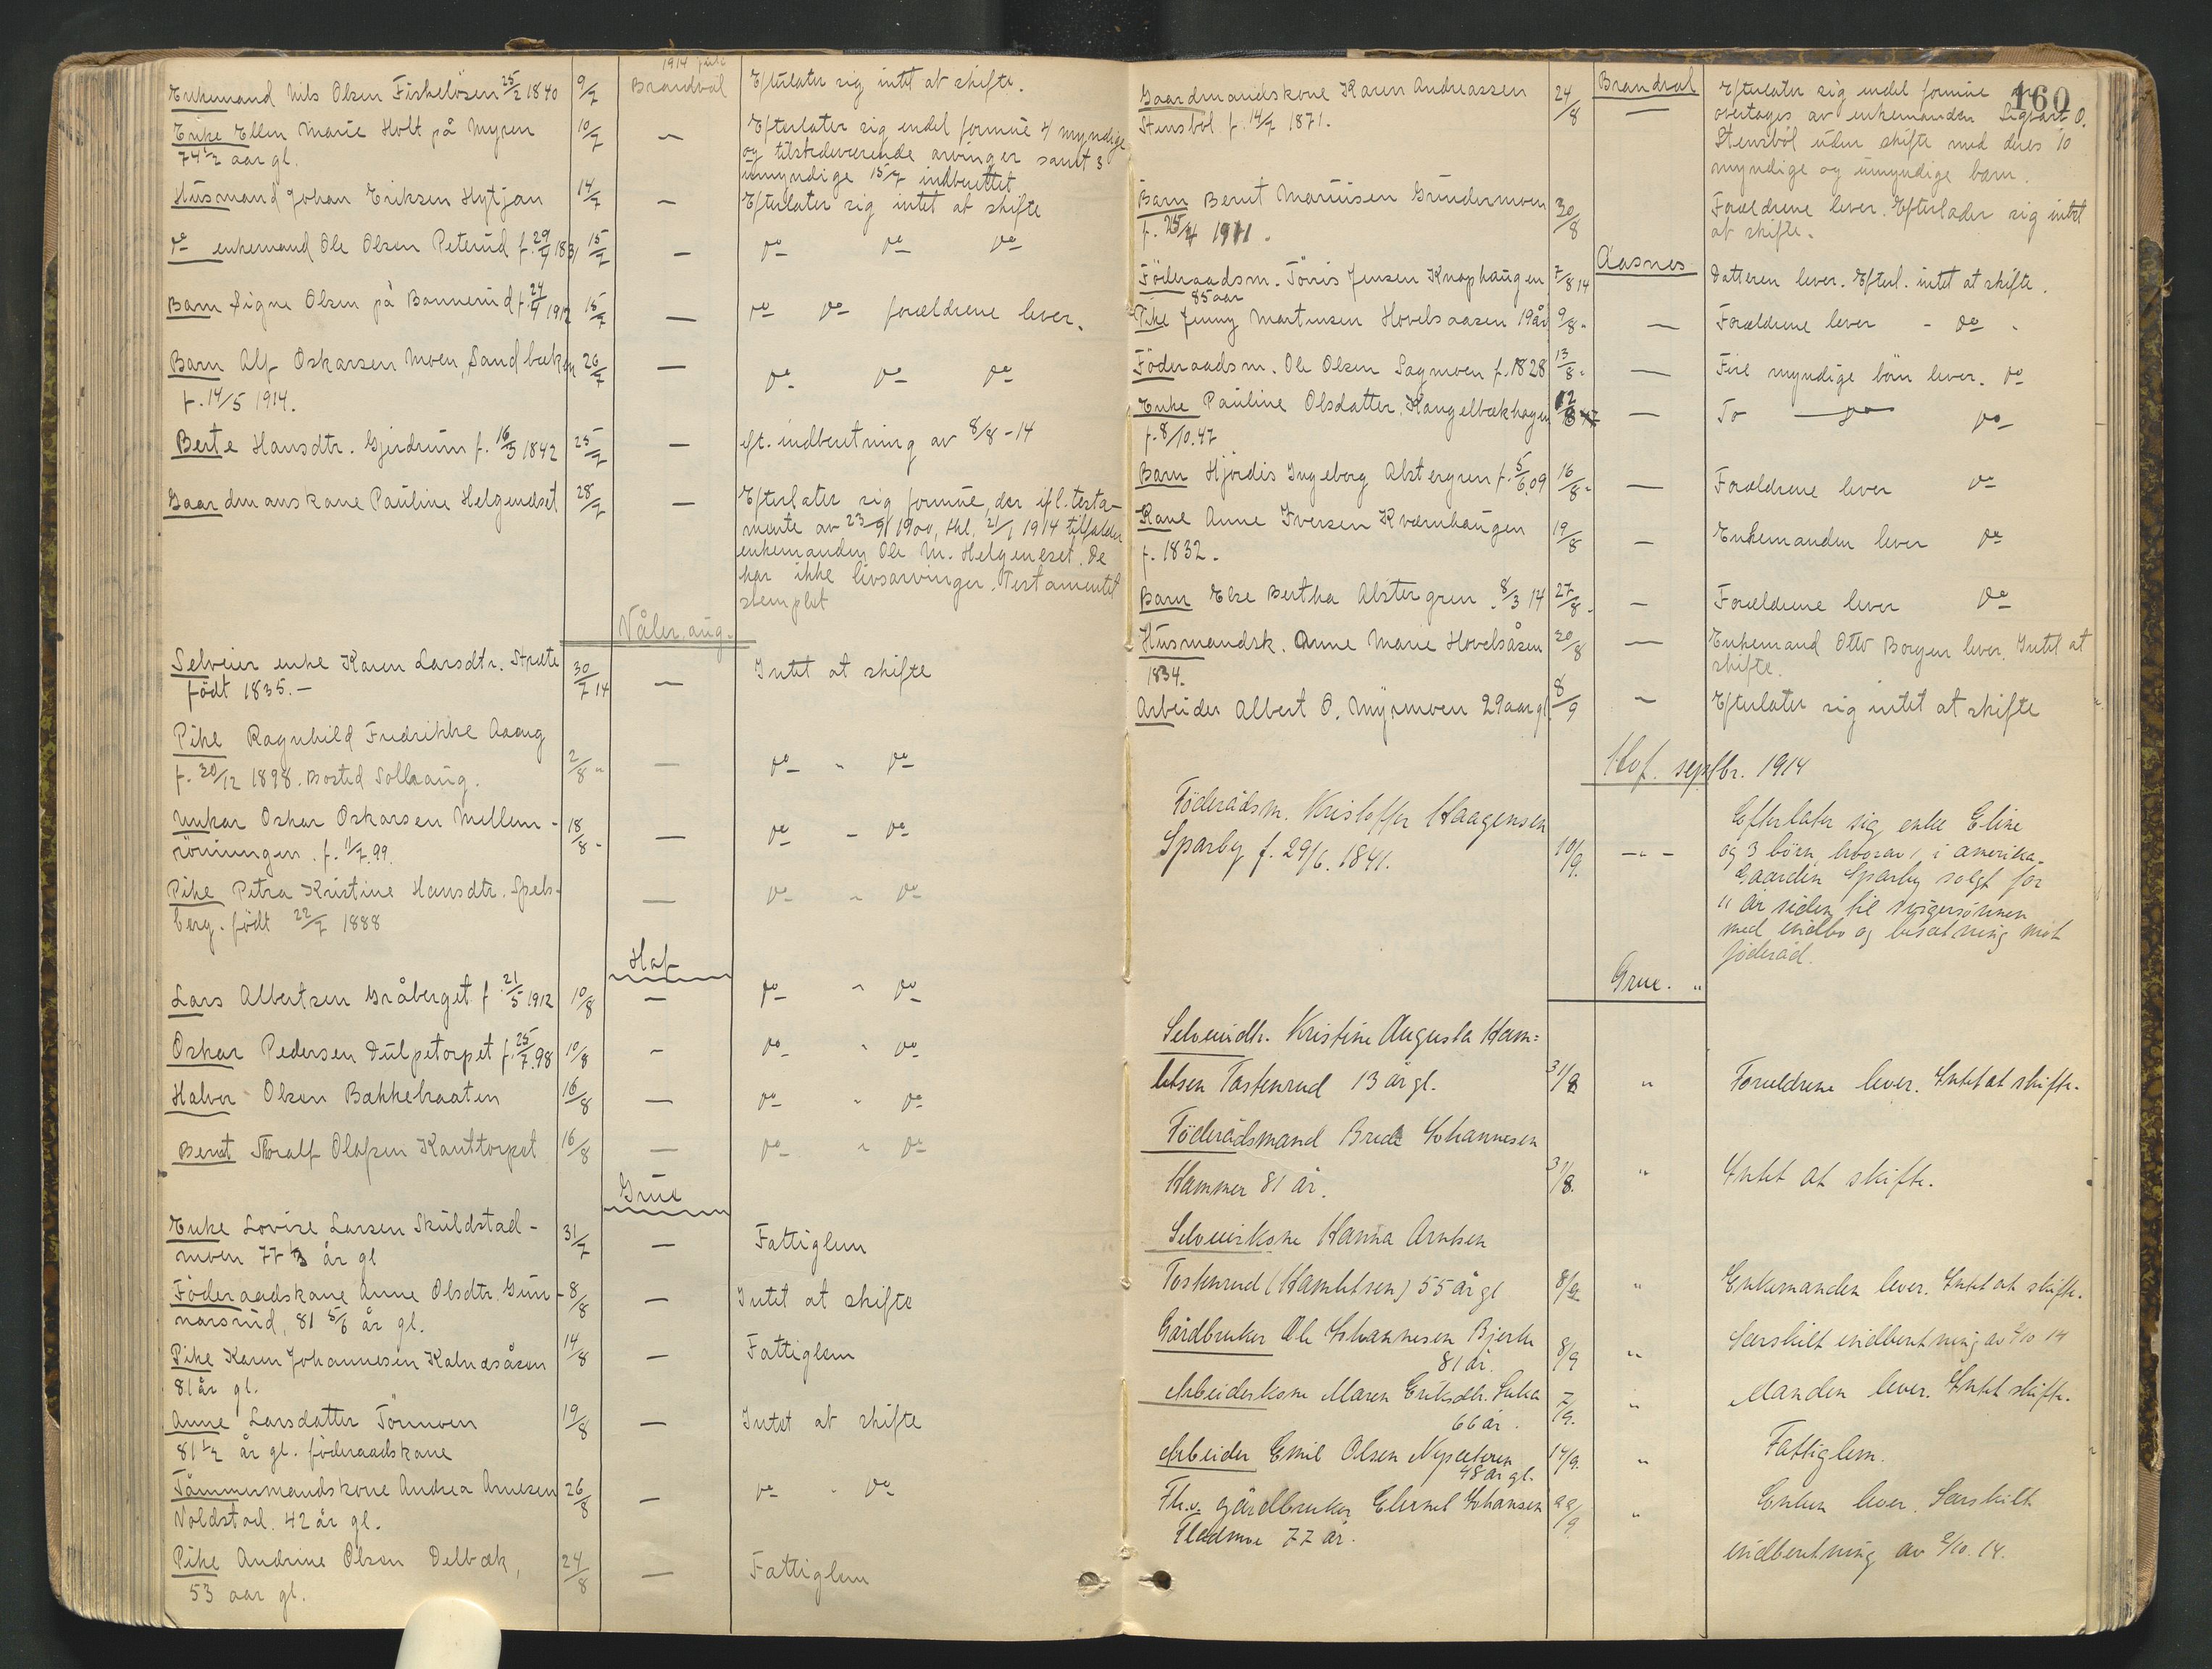 1914 juli
Enkemand Nils Olsen Fiskelösen 25/2 1840 9/7 Brandvol Efterlater sig intet at skifte.
Enke Ellen Marie Holt på Myren 10/7 — Efterlater sig endel formue 4 myndige
74 1/2 aar gl. og tilstedeværende arvinger samt 3
umyndige 15/7 indberettet
Husmand Johan Eriksen Hytjan 14/7 — Efterlater sig intet at skifte
do enkemand Ole Olsen Peterud f. 29/9 1831 15/7 — do do do
Barn Signe Olsen på Bannerud f. 24/4 1912 15/7 — do do forældrene lever.
Barn Alf Oskarsen Moen, Sandbæken 26/7 — do do do
f. 14/5 1914.
Berte Hansdtr. Gjerdrum f. 16/3 1842 25/7 — eft. indberetning av 8/8-14
Gaardmanskone Pauline Helgeneset 28/7 — Efterlater sig formue, der ifl. testa-
mente av 23/9 1900, thl. 21/1 1914 tilfalder
enkemanden Ole M. Helgeneset. De
har ikke livsarvinger. Testamentet
stemplet
Våler, aug.
Selveier enke Karen Larsdtr. Stræte 30/7 14 — Intet at skifte
født 1835. —
Pike Ragnhild Fredrikke Aaeng
f. 30/12 1898. Bosted Sollaaug. 2/8 " — do " do
Unkar Oskar Oskarsen Mellem- 18/8 - — do - do
röningen. f. 1/7.99.
Pike Petra Kristine Hansdtr. Spets-
berg. født 22/7 1888 — do " do
Hof
Lars Albertsen Gråberget f 21/5 1912 10/8 — do " do
Oskar Pedersen Dulpetorpet f. 25/7.98 10/8 - do " do
Halvor Olsen Bakkebraaten 16/8 — do " do
Bernt Thoralf Olafsen Kanttorpet 16/8 — do " do
Grue
Enke Lovise Larsen Skuldstad- 31/7 — Fattiglem
moen 77 1/3 år gl
Föderaadskone Anne Olsdtr. Gun- 8/8 — Intet at skifte
narsrud, 81 5/6 år gl.
Pike Karen Johannesen Kalnæsåsen 14/8 — Fattiglem
81 år gl.
Anne Larsdatter Tönmoen 19/8 — Intet at skifte
81 1/2 år gl. föderaadskone
Tömmermandskone Andrea Arnesen 26/8 — do " do
Voldstad. 42 år gl.
Pike Andrine Olsen Delbæk, 24/8 — Fattiglem
53 aar gl.
160
Gaardmandskone Karen Andreassen 24/8 Brandval — Efterlater sig endel formue som
Stensböl f. 14/7 1871. overtages av enkemanden Sigvart O.
Stensböl uden skifte med deres 10
myndige og umyndige barn.
Barn Bernt Mariusen Grundermoen 30/8 Forældrene lever. Efterlader sig intet
f. 25/4 1911. at skifte.
Aasnes
Föderaadsm. Tönis Jensen Knaphaugen 7/8 14 Datteren lever. Efterl. intet at skifte.
85 aar
Pike Jenny Martinsen Hovelsaasen 19 år 9/8 - — Forældrene lever - do -
Föderaadsm. Ole Olsen Sagmoen f. 1828 13/8 - — Fire myndige börn lever. do
Enke Pauline Olsdatter, Kangelbækhagen 12/8 — To — do — do
f. 8/10.47
Barn Hjördis Ingeborg Alstergren f. 5/6.09 16/8 - — Forældrene lever do
Kone Anne Iversen Kværnhaugen 19/8 — Enkemanden lever do
f. 1832.
Barn Else Bertha Alstergren. 8/3 14 27/8 - — Forældrene lever do
Husmandsk. Anne Marie Hovelsåsen 20/8 — Enkemand Otto Borgen lever. Intet at
1834. skifte.
Arbeider Albert O. Myrmoen 29 aar gl. 8/9 — Efterlater sig intet at skifte
Hof. septbr. 1914
Föderådsm. Kristoffer Haagensen Efterlater sig enke Eline
Sparby f. 29/6. 1841. 10/9. - " - og 3 börn, hvorav 1 i amerika.
Gaarden Sparby solgt for
11 år siden til svigersönnen
med indbo og besætning mot
föderåd.
Grue. "
Selveierdtr. Kristine Augusta Ham=
letsen Tastenrud 13 år gl. 31/8 " Forældrene lever. Intet at skifte.
Föderådsmand Brede Johannesen
Hammer 81 år. 31/8. " Intet at skifte.
Selveierkone Hanna Arntsen
Tostenrud (Hamletsen) 55 år gl 8/9 " Enkemanden lever. Intet at skifte.
Gårdbruker Ole Johannesen Bjerke 8/9 " Særskilt indberetning av 2/10 14
81 år.
Arbeiderkone Maren Eriksdtr. Suka 7/9. " Manden lever. Intet skifte.
66 år.
Arbeider Emil Olsen Nysæteren 14/9. " Fattiglem.
48 år gl.
Fh.v. gårdbruker Elernt Johansen 22/9. " Enken lever. Særskilt
Fladmoe 77 år. indberetning av 2/10. 14.